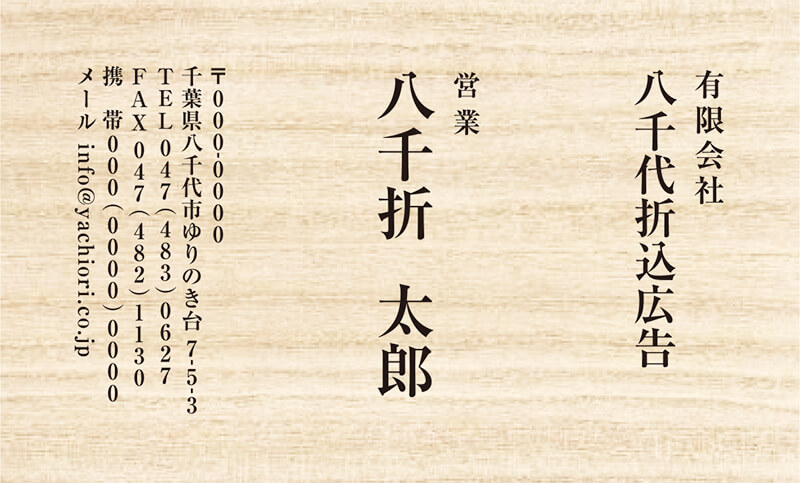 有限会社
八千代折込広告
営業
八千折 太郎
〒000-0000
千葉県八千代市ゆりのき台 7-5-3
TEL 047(483)0627
FAX 047(482)1130
携 帯 000(0000)0000
メール info@yachiori.co.jp